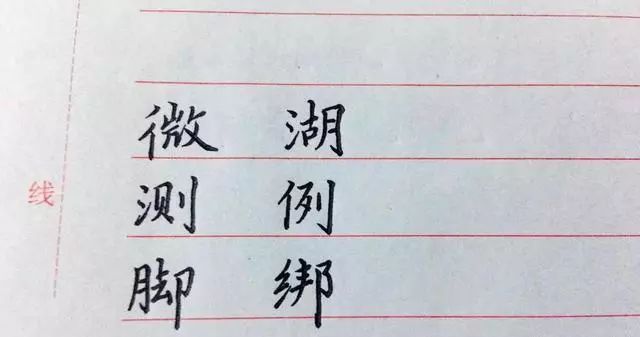 微 湖
线
测 例
脚 绑